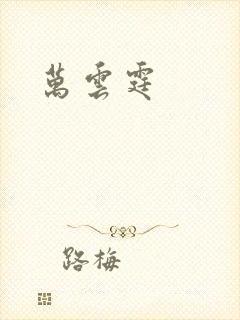 萬雲霆
路梅